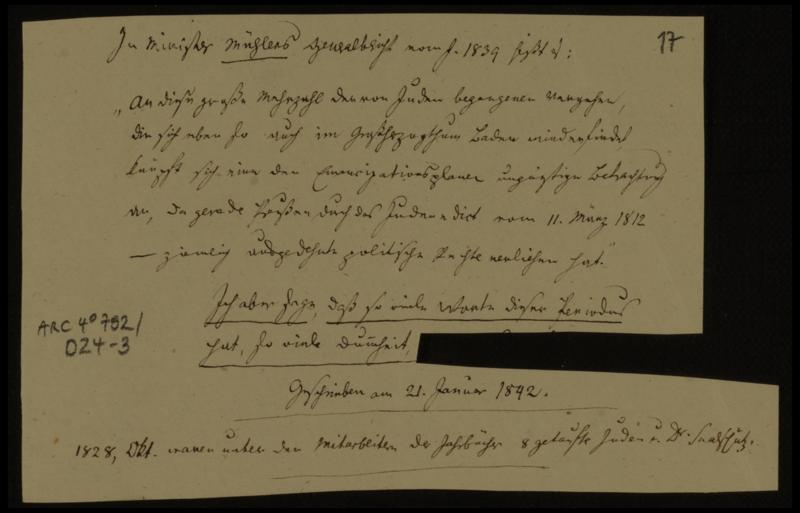 17
In Minister Mühlers Generalbericht vom J. 1839 heißt es:
„An diese große Mehrzahl der von Juden begangenen Vergehen,
die sich eben so auch im Großherzogthum Baden wiederfindet
knüpft sich eine den Emancipationsplanen ungünstige Betrachtung
an, da gerade Preußen durch das Judenedict vom 11. März 1812
— ziemlich ausgedehnte politische Rechte verliehen hat."
Ich aber sage, daß so viele Worte dieser Periodus
hat, so viele Dummheit,
ARC 4° 792/
D24-3
Geschrieben am 21. Januar 1842.
1828, Okt. waren unter den Mitarbeitern der Jahrbücher 8 getaufte Juden u. Dr. Saalschütz.